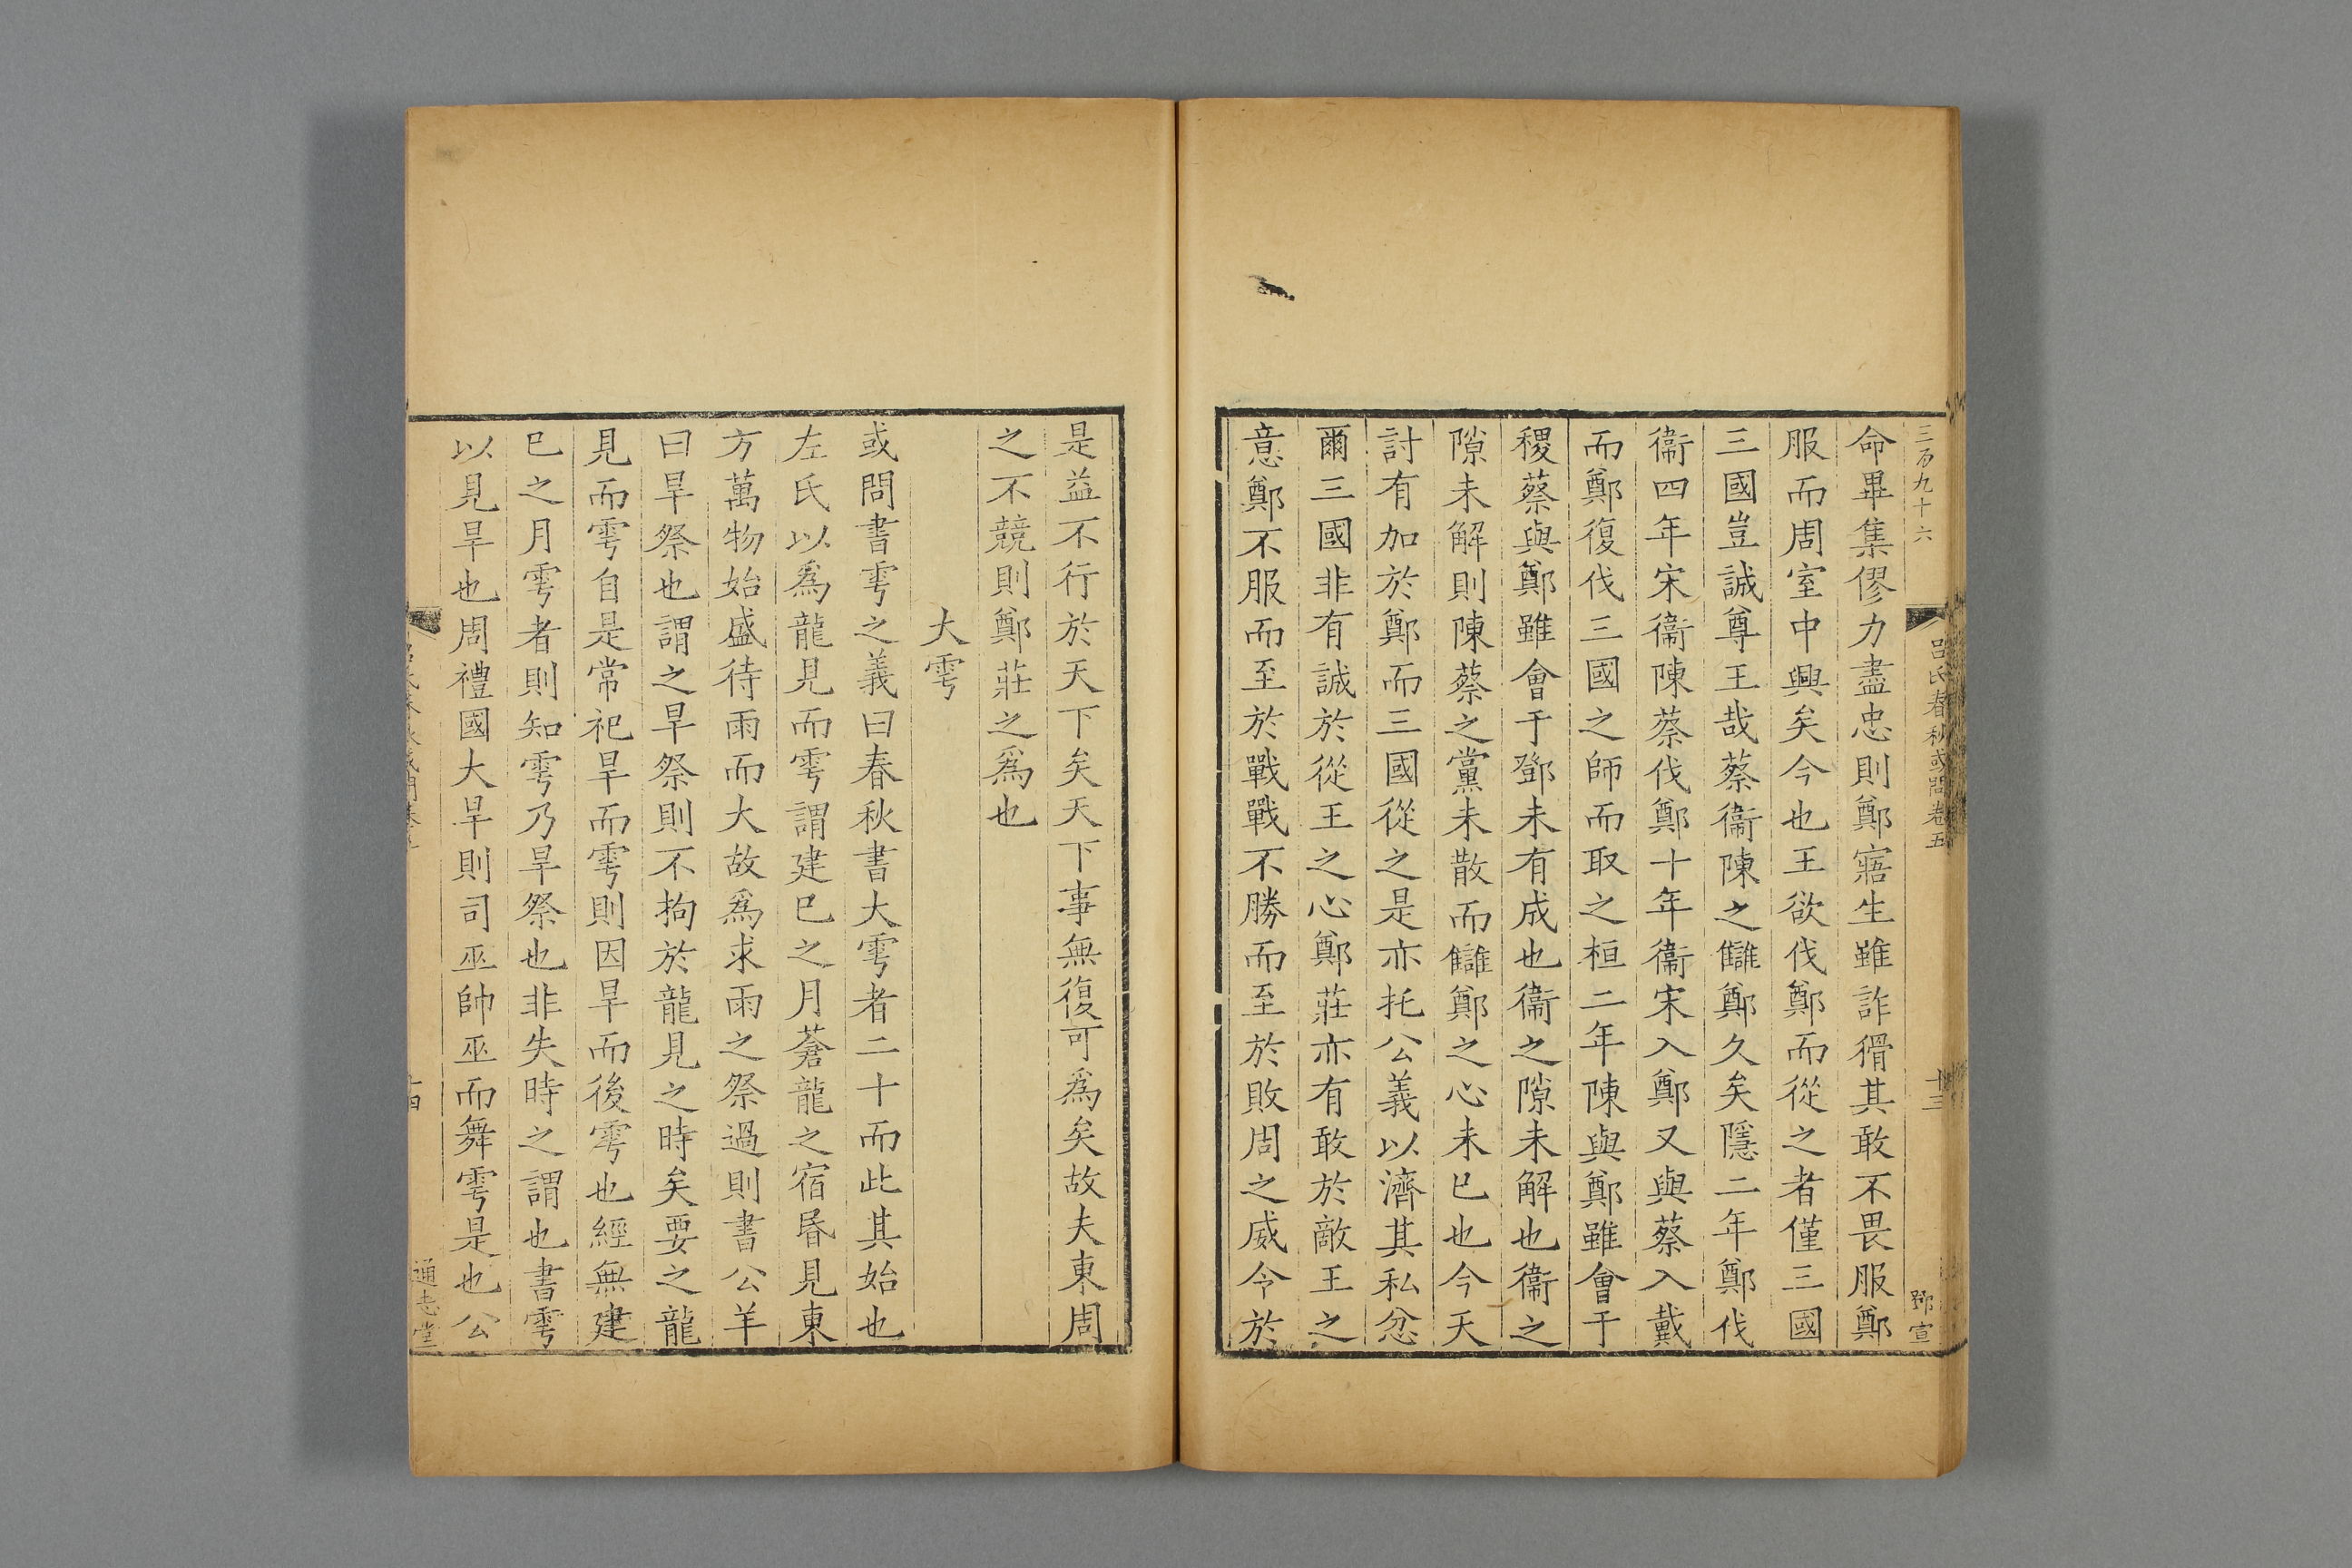 三百九十六
呂氏春秋或問卷五
十三
鄧宣
命畢集僇力盡忠則鄭寤生雖詐猾其敢不畏服鄭
服而周室中興矣今也王欲伐鄭而從之者僅三國
三國豈誠尊王哉蔡衞陳之讎鄭久矣隱二年鄭伐
衞四年宋衞陳蔡伐鄭十年衞宋入鄭又與蔡入戴
而鄭復伐三國之師而取之桓二年陳與鄭雖會于
稷蔡與鄭雖會于鄧未有成也衞之隙未解也衞之
隙未解則陳蔡之黨未散而讎鄭之心未已也今天
討有加於鄭而三國從之是亦托公義以濟其私忿
爾三國非有誠於從王之心鄭莊亦有敢於敵王之
意鄭不服而至於戰戰不勝而至於敗周之威令於
是益不行於天下矣天下事無復可爲矣故夫東周
之不競則鄭莊之爲也
大雩
或問書雩之義曰春秋書大雩者二十而此其始也
左氏以爲龍見而雩謂建巳之月蒼龍之宿昏見東
方萬物始盛待雨而大故爲求雨之祭過則書公羊
曰旱祭也謂之旱祭則不拘於龍見之時矣要之龍
見而雩自是常祀旱而雩則因旱而後雩也經無建
巳之月雩者則知雩乃旱祭也非失時之謂也書雩
以見旱也周禮國大旱則司巫帥巫而舞雩是也公
十四
通志堂